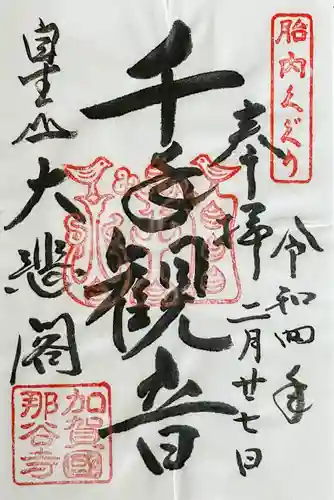 胎内くぐり
奉拝
令和四年
二月廿七日
千手観音
大悲閣
加賀國
那谷寺